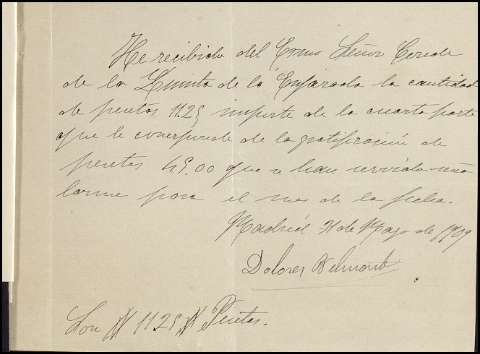 He recibido del Excmo Señor Conde
de la Quinta de la Enjarada la cantidad
de pesetas 11.25 importe de la cuarta parte
que le corresponde de la gratificación de
pesetas 45.00 que se han servido seña
larme para el mes de la fecha.
Madrid 31 de Mayo de 1909
Dolores Belmonte
Son # 11.25 # Pesetas.